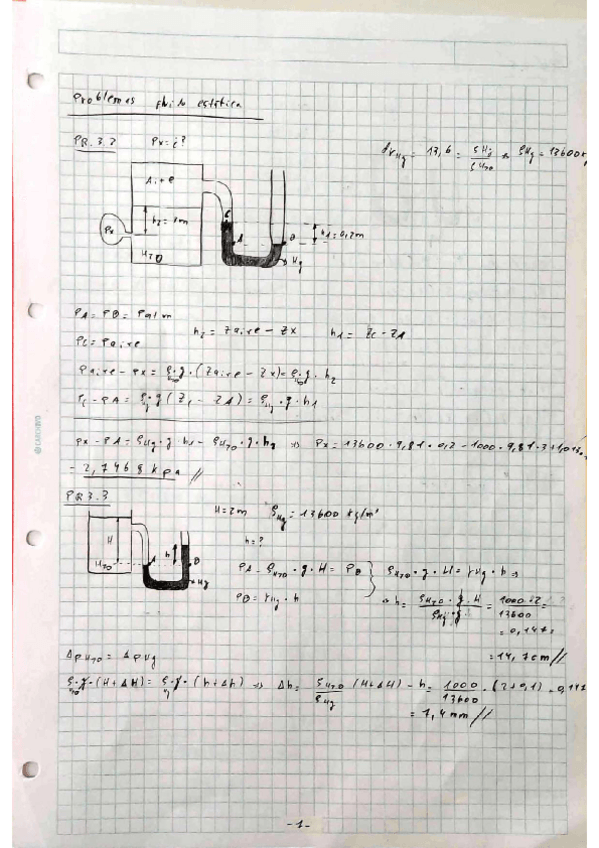 Problemas fluido estática
PR.3.2 Px=¿?
drHg = 13,6 = ρHg / ρH2O => ρHg = 13600
Aire
h2=
C
h1=0,2m
Px
A
B
H2O
Hg
PA=PB=Patm
h2 = Zaire - Zx h1 = Zc - ZA
Pc=Paire
Paire - Px = ρH2O·g·(Zaire - Zx)= ρH2O·g·h2
Pc - PA = ρHg·g(Zc - ZA) = ρHg·g·h1
CARCHIVO
Px - PA = ρHg·g·h1 - ρH2O·g·h2 => Px = 13600·9,81·0,2 - 1000·9,81·
= 2,7468 kPa //
PR3.3
H=2m ρHg = 13600 kg/m³
H
h
h=?
H2O
A
B
Hg
PA = ρH2O·g·H = PB
PB = γHg·h
ρH2O·g·H = γHg·h =>
=> h = ρH2O·g·H / ρHg·g = 1000·2 / 13600 =
= 0,147
= 14,7cm //
ΔpH2O = ΔpHg
ρH2O·g·(H+ΔH) = ρHg·g·(h+Δh) => Δh = ρH2O / ρHg (H+ΔH) - h = 1000 / 13600 · (2+0,1) - 0,147
= 7,4mm //
-1-